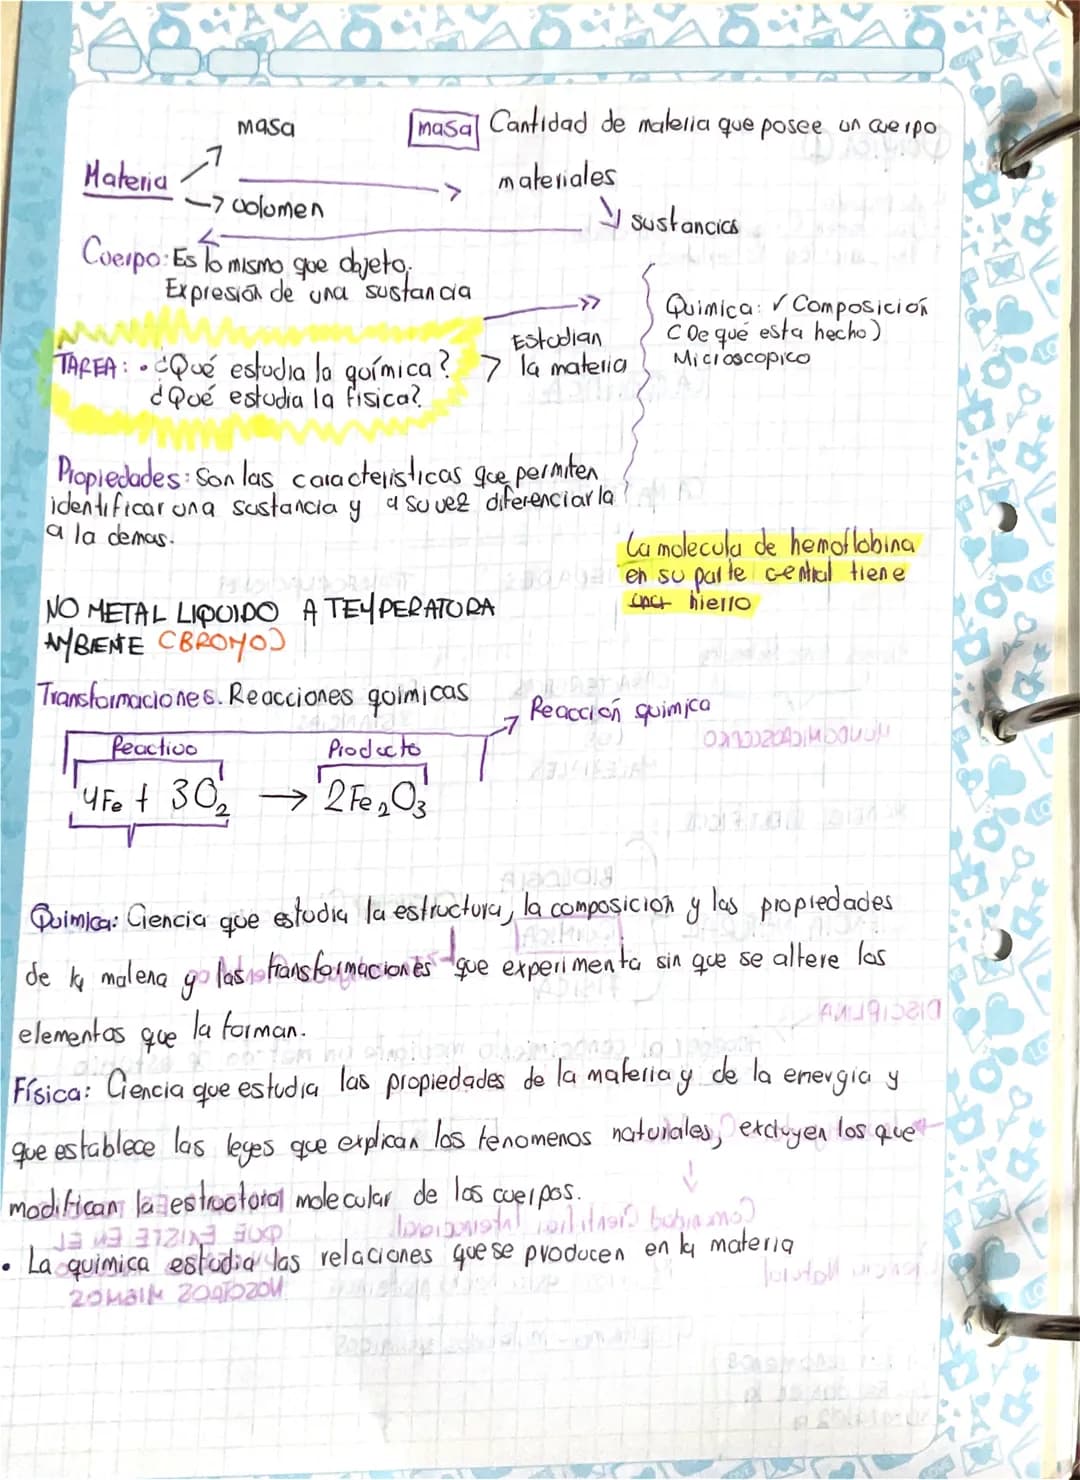 masa
masa Cantidad de materia que posee un cuerpo
Materia
materiales
volumen
sustancias
Cuerpo: Es lo mismo que objeto.
Expresión de una sustancia
Quimica: ✓ Composición
(De qué esta hecho)
Microscopico
Estudian
la materia
TAREA: • ¿Qué estudia la química?
¿Qué estudia la fisica?
Propiedades: Son las caracteristicas que permiten
identificar una sustancia y a su vez diferenciarla
a la demas.
La molecula de hemoflobina
en su parte central tiene
hierro
NO METAL LIQUIDO A TEMPERATURA
AMBIENTE (BROMO)
Transformaciones. Reacciones quimicas
Reacción quimica
Reactivo Producto
4Fe + 3O₂ → 2Fe₂O₃
Quimica: Ciencia que estudia la estructura, la composicion y las propiedades
de la materia y las transformaciones que experimenta sin que se altere los
elementos que la forman.
Física: Ciencia que estudia las propiedades de la materia y de la energia y
que establece las leyes que explican los fenomenos naturales, excluyen los que
modifican la estructora molecular de los cuerpos.
• La quimica estudia las relaciones que se producen en la materia